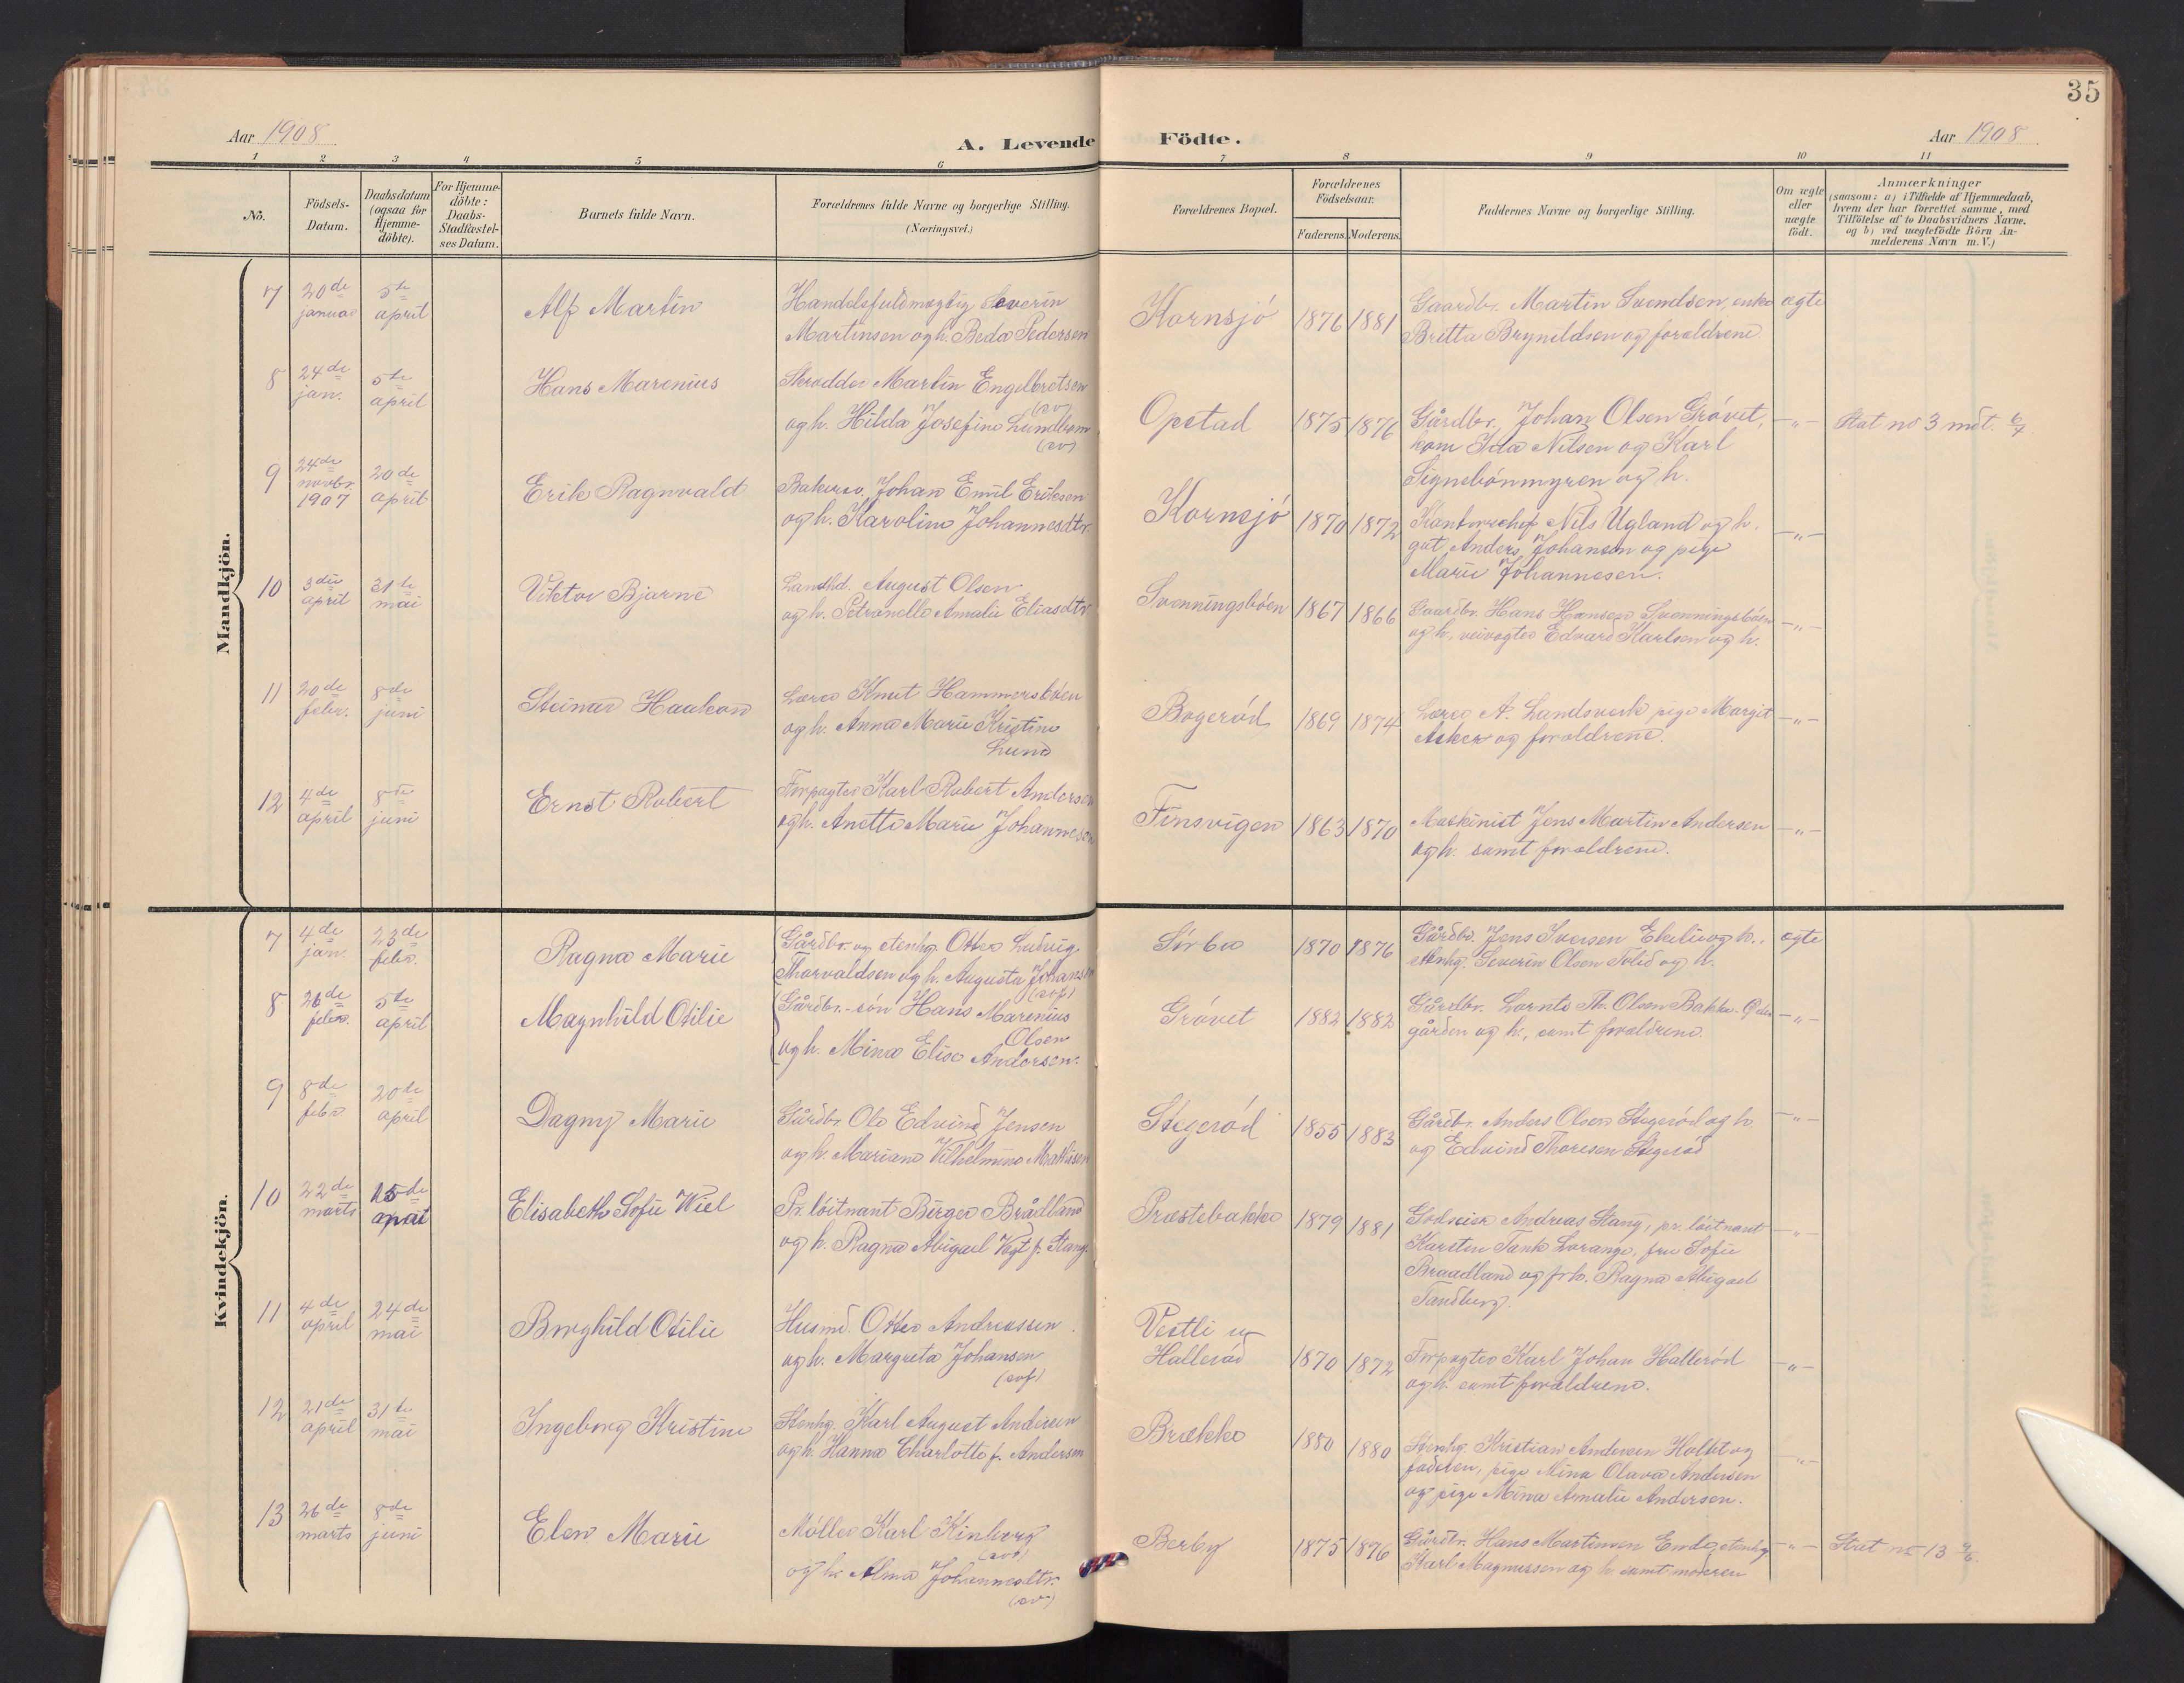 35
Aar 1908
A. Levende Födte.
Aar 1908
1 2 3 4 5 6 7 8 9 10 11
No.
Födsels-Datum.
Daabsdatum (ogsaa for Hjemme-döbte).
For Hjemme-döbte: Daabs-Stadfæstel-ses Datum.
Barnets fulde Navn.
Forældrenes fulde Navne og borgerlige Stilling. (Næringsvei.)
Forældrenes Bopæl.
Forældrenes Födselsaar.
Faderens. Moderens.
Faddernes Navne og borgerlige Stilling.
Om ægte eller uægte födt.
Anmærkninger
(saasom: a) i Tilfælde af Hjemmedaab,
hvem der har forrettet samme, med
Tilföielse af to Daabsvidners Navne.
og b) ved uægtefödte Börn An-
melderens Navn m. V.)
Mandkjön.
7 20de januar 5te april Alf Martin
Handelsfuldmægtig Severin
Martinsen og h. Beda Pedersen
Kornsjö 1876 1881
Gaardbr. Martin Svendsen, enke
Britta Bryneldsen og forældrene.
ægte
8 24de jan. 5te april Hans Marenius
Skrædder Martin Engelbretsen
(sv)
og h. Hilda Josefine Lundbom
(sv)
Opstad 1875 1876
Gårdbr. Johan Olsen Grövet,
kone Ida Nilsen og Karl
Signebönmyren og h.
-"-
Stat no 3 mdt. 6/4
9 24de novbr. 1907 20de april Erik Ragnvald
Bakersv. Johan Emil Eriksen
og h. Karoline Johannesdtr
Kornsjö 1870 1872
Kontorchef Nils Ugland og h.
gut Anders Johansen og pige
Marie Johannesen.
-"-
10 3die april 31te mai Viktor Bjarne
Landhd. August Olsen
og h. Petronelle Amalie Eliasdtr
Svenningsböen 1867 1866
Gaardbr. Hans Hansen Svenningsböen
og h., veivogter Edvard Karlsen og h.
-"-
11 20de febr. 8de juni Steinar Haakon
Lærer Knut Hammersböen
og h. Anna Marie Kristine
Lund
Bogeröd 1869 1874
Lærer A. Landsverk pige Margit
Asker og forældrene.
-"-
12 4de april 8de juni Ernst Robert
Forpagter Karl Robert Andersen
og h. Anette Marie Johannesen
Finsvigen 1863 1870
Maskinist Jens Martin Andersen
og h. samt forældrene.
-"-
Kvindekjön.
7 4de jan. 23de febr. Ragna Marie
Gårdbr. og stenhg. Otter Ludvig
Thorvaldsen og h. Augusta Johansen
(svf)
Sörbo 1870 1876
Gårdbr. Jens Iversen Ekelie og h.,
stenhg. Severin Olsen og h.
ægte
8 26de febr. 5te april Magnhild Otilie
Gårdbr.-sön Hans Marenius
Olsen
og h. Mina Elise Andersen.
Grövet 1882 1882
Gårdbr. Lornts Th. Olsen Bakke-
gården og h., samt forældrene.
-"-
9 8de febr 20de april Dagny Marie
Gårdbr. Ole Edvind Jensen
og h. Mariane Vilhelmine Mathisen
Stegeröd 1855 1883
Gårdbr. Anders Olsen Stegeröd og h.
og Edvind Thoresen Stegeröd
-"-
10 22de marts 15de mai Elisabeth Sofie Wiel
Pr. löitnant Birger Brådland
og h. Ragna Abigael Vogt f. Stang.
Præstebakke 1879 1881
Godseier Andreas Stang, pr. löitnant
Karsten Tank Lorange, fru Sofie
Braadland og frk. Ragna Abigael
Tandberg.
-"-
11 4de april 24de mai Borghild Otilie
Husmd. Otter Andreassen
og h. Margreta Johansen
(svf)
Vestli u
Halleröd 1870 1872
Forpagter Karl Johan Halleröd
og h. samt forældrene.
-"-
12 21de april 31te mai Ingeborg Kristine
Stenhg. Karl August Andersen
og h. Hanna Charlotte f. Andersen
Brække 1880 1880
Stenhg. Kristian Andersen Holst og
faderen, pige Mina Olava Andersen
og pige Mina Amalie Andersen.
-"-
13 26de marts 8de juni Elen Marie
Möller Karl Kinberg
(svs)
og h. Alma Johannesdtr.
(sv)
Berby 1875 1876
Gårdbr. Hans Martinsen Ende, stenhg.
Karl Magnussen og h. samt moderen
-"-
Stat no 13 9/6.